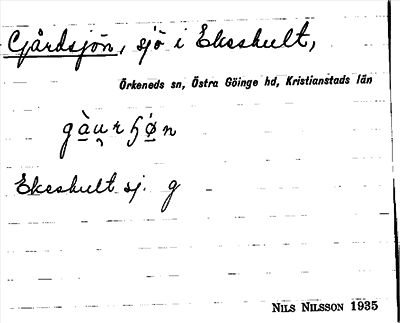 Gårdsjön, sjö i Ekeshult,
Örkeneds sn, Östra Göinge hd, Kristianstads län
gàu̯rɧø̀n
Ekeshult sj. g
NILS NILSSON 1935